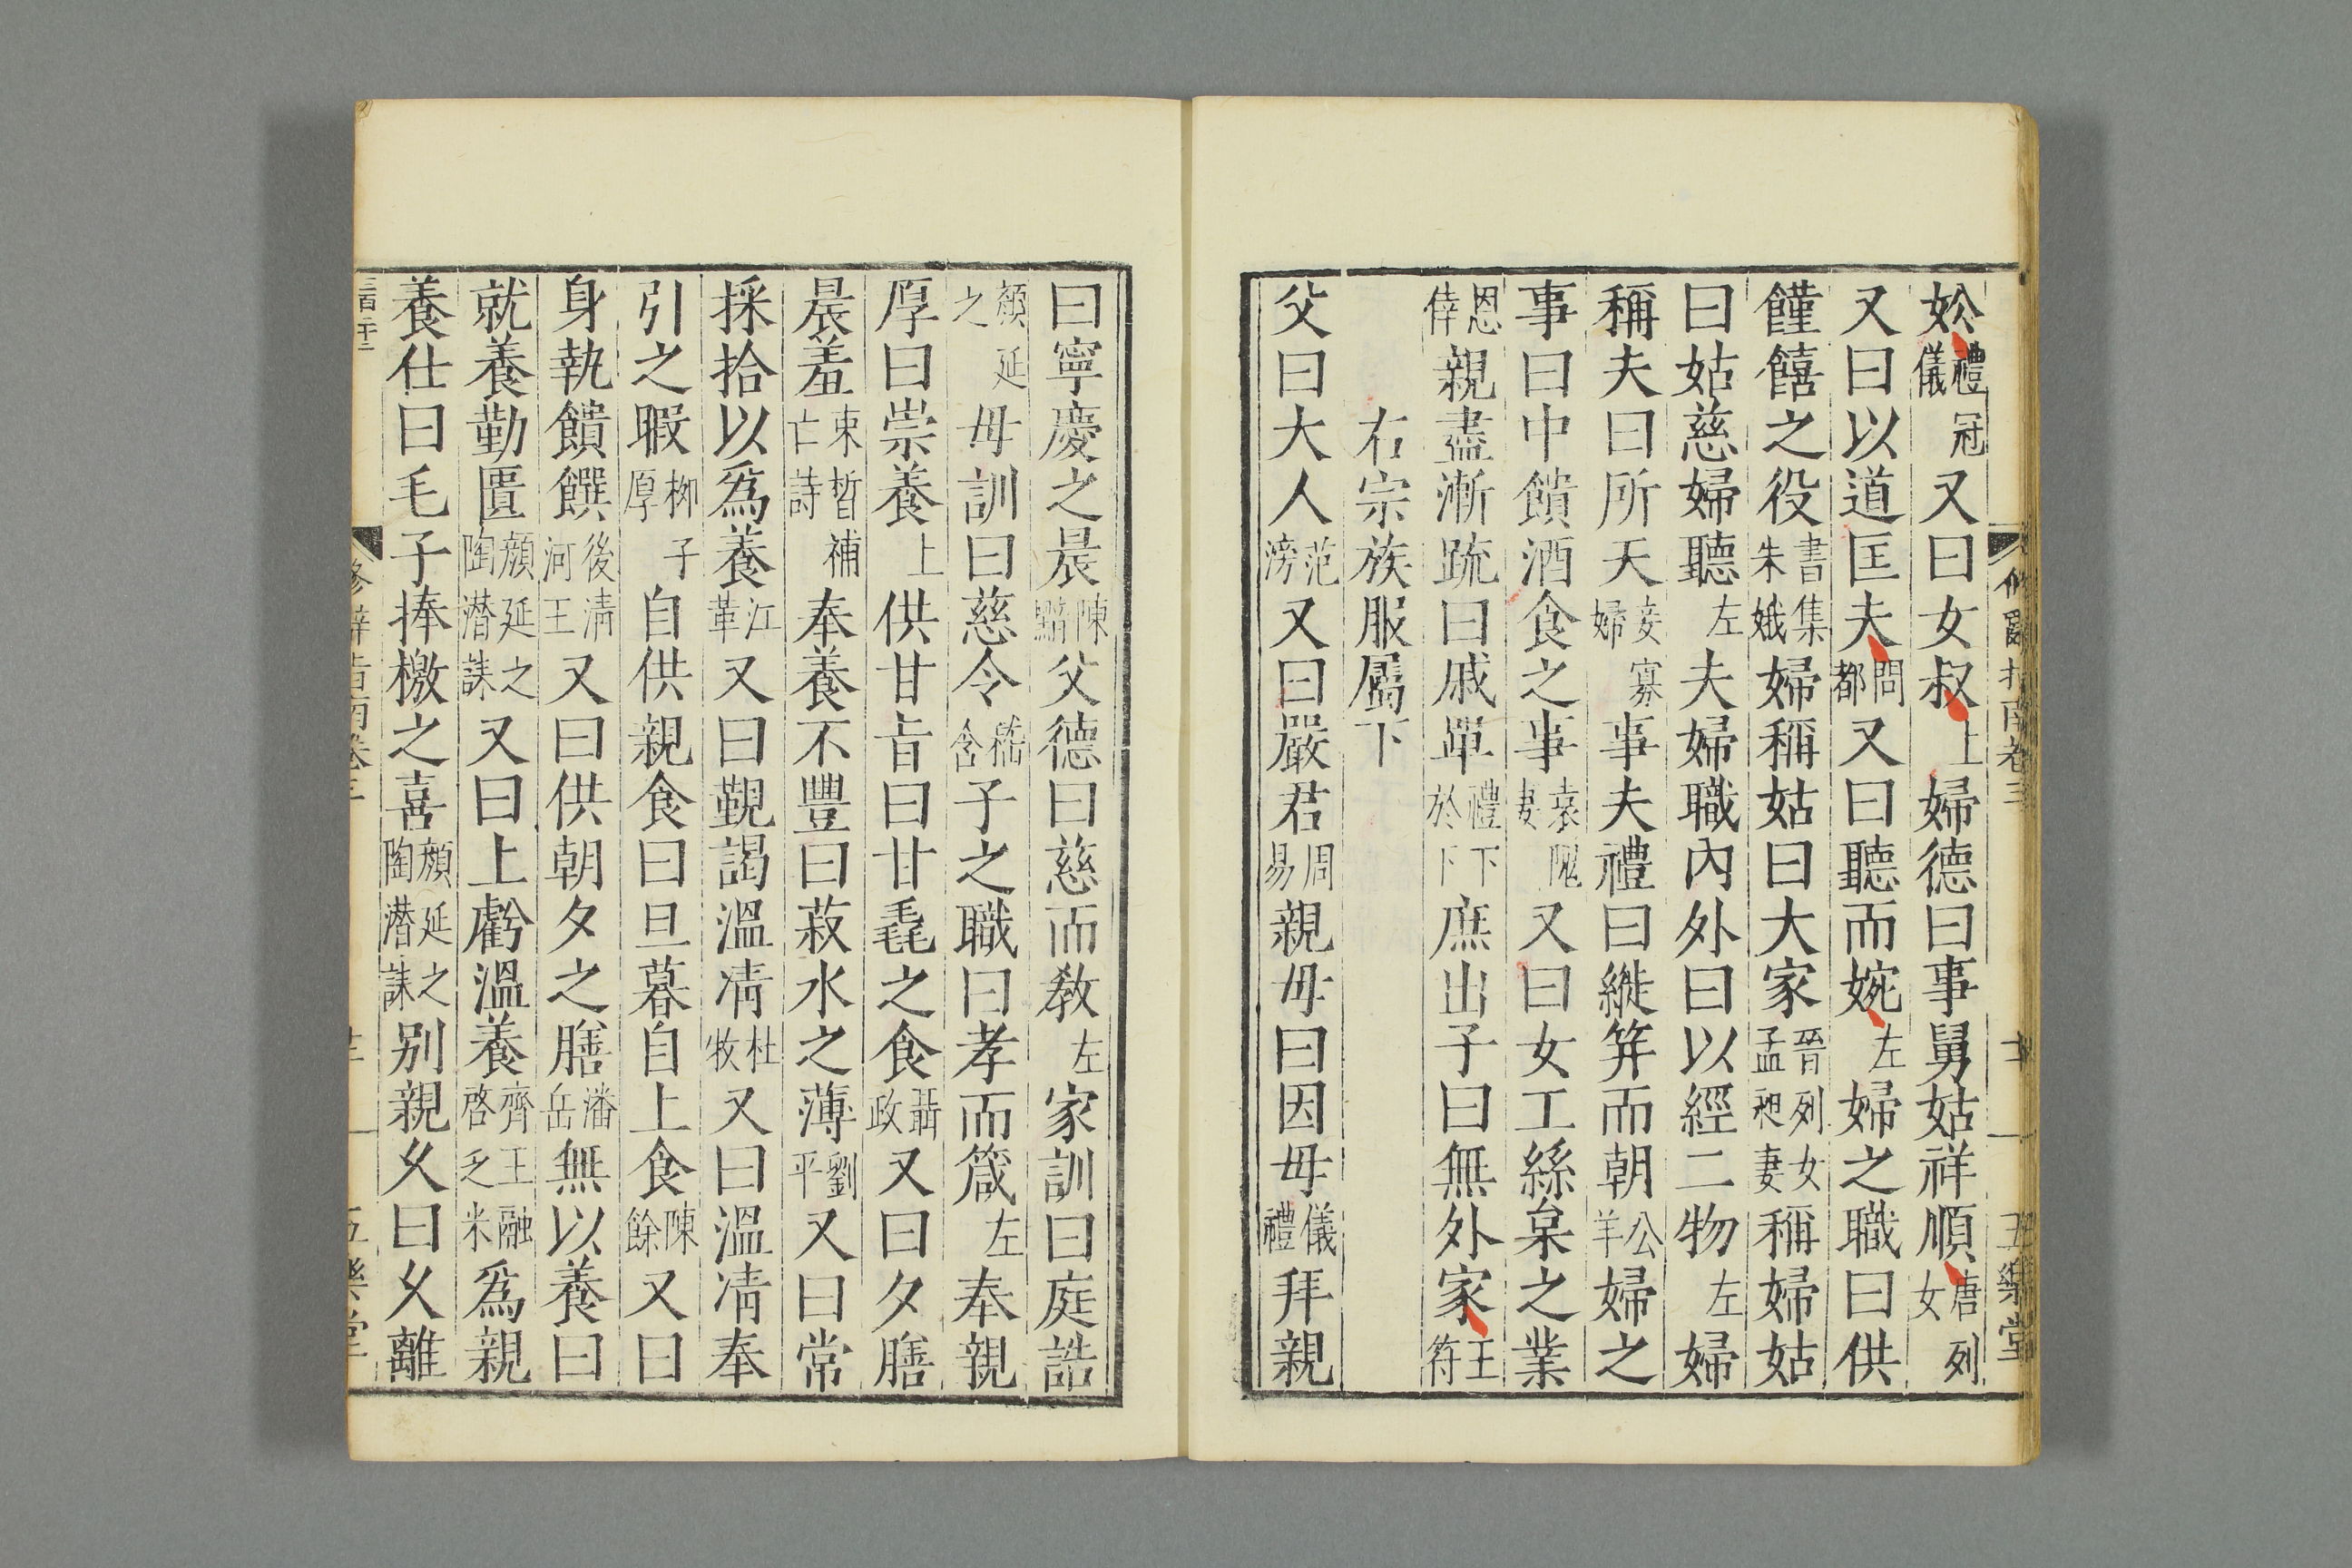 修辭指南卷三
五樂堂
妐禮儀冠又曰女叔上婦德曰事舅姑祥順唐列女
又曰以道匡夫問都又曰聽而婉左婦之職曰供
饉饎之役書集朱娥婦稱姑曰大家晉列女孟昶妻稱婦姑
曰姑慈婦聽左夫婦職內外曰以經二物左婦
稱夫曰所天妾寡婦事夫禮曰縰笄而朝公羊婦之
事曰中饋酒食之事袁隗妻又曰女工絲枲之業
恩倖親盡漸疏曰戚單禮下於下庶出子曰無外家王符
右宗族服屬下
父曰大人范滂又曰嚴君周易親母曰因母儀禮拜親
曰寧慶之晨陳黯父德曰慈而教左家訓曰庭誥
顏延之母訓曰慈令嵇含子之職曰孝而箴左奉親
厚曰崇養上供甘旨曰甘毳之食聶政又曰夕膳
晨羞束晳補亡詩奉養不豐曰菽水之薄劉平又曰常
採拾以爲養江革又曰覲謁溫凊杜牧又曰溫凊奉
引之暇柳子厚自供親食曰旦暮自上食陳餘又曰
身執饋饌後清河王又曰供朝夕之膳潘岳無以養曰
就養勤匱顏延之陶潛誄又曰上虧溫養齊王融啓乏米爲親
養仕曰毛子捧檄之喜顏延之陶潛誄别親久曰久離
修辭指南卷三
五樂堂